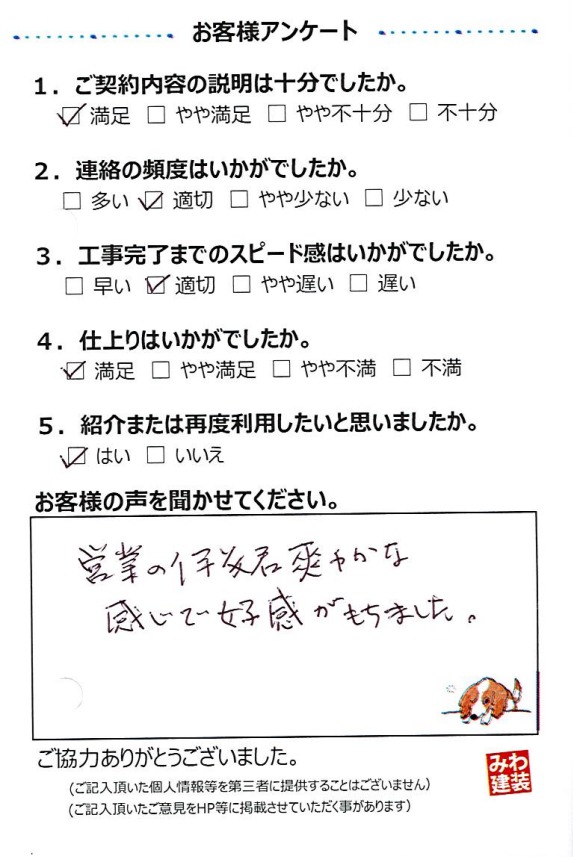 お客様アンケート
1. ご契約内容の説明は十分でしたか。
☑ 満足 □ やや満足 □ やや不十分 □ 不十分
2. 連絡の頻度はいかがでしたか。
□ 多い ☑ 適切 □ やや少ない □ 少ない
3. 工事完了までのスピード感はいかがでしたか。
□ 早い ☑ 適切 □ やや遅い □ 遅い
4. 仕上りはいかがでしたか。
☑ 満足 □ やや満足 □ やや不満 □ 不満
5. 紹介または再度利用したいと思いましたか。
☑ はい □ いいえ
お客様の声を聞かせてください。
営業の伊友君爽やかな
感じで好感がもちました。
ご協力ありがとうございました。
(ご記入頂いた個人情報等を第三者に提供することはございません)
(ご記入頂いたご意見をHP等に掲載させていただく事があります)
みわ
建装